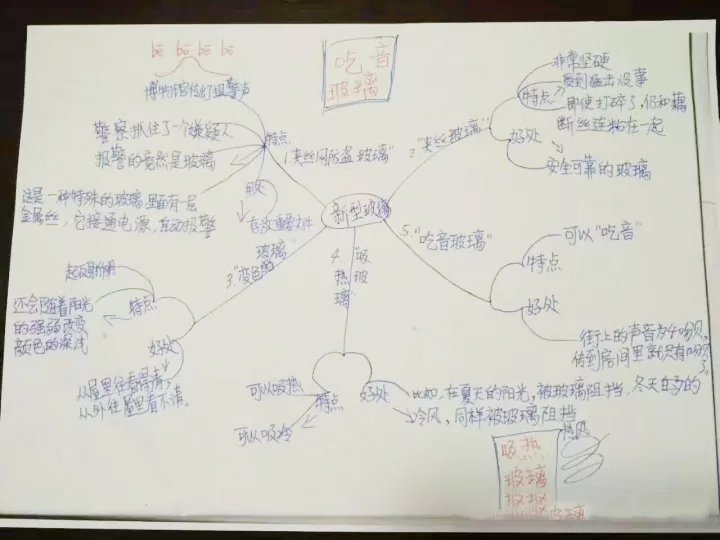 bō bō bō bō
博物馆传了报警声
警察抓住了一个嫌疑人
报警的竟然是玻璃
特点
这是一种特殊的玻璃里面有一层
金属丝,它接通电源,自动报警
存放重要文件
1.夹丝网防盗玻璃"
吃音
玻璃
2."夹丝玻璃"
特点
非常坚硬
受到猛击没事
即使打碎了,仍和藕
断丝连粘在一起
好处
安全可靠的玻璃
新型玻璃
3."变色的
玻璃"
特点
还会随着阳光
的强弱改变
颜色的深浅
好处
从屋里往看得清,
从外往屋里看不清。
4."吸
热玻
璃"
特点
可以吸热
可以吸冷
好处
比如,在夏天的阳光,被玻璃阻挡,冬天的
冷风,同样被玻璃阻挡
5."吃音玻璃"
可以"吃音"
特点
好处
街上的声音为40分贝,
传到房间里就只有
吸热
玻璃